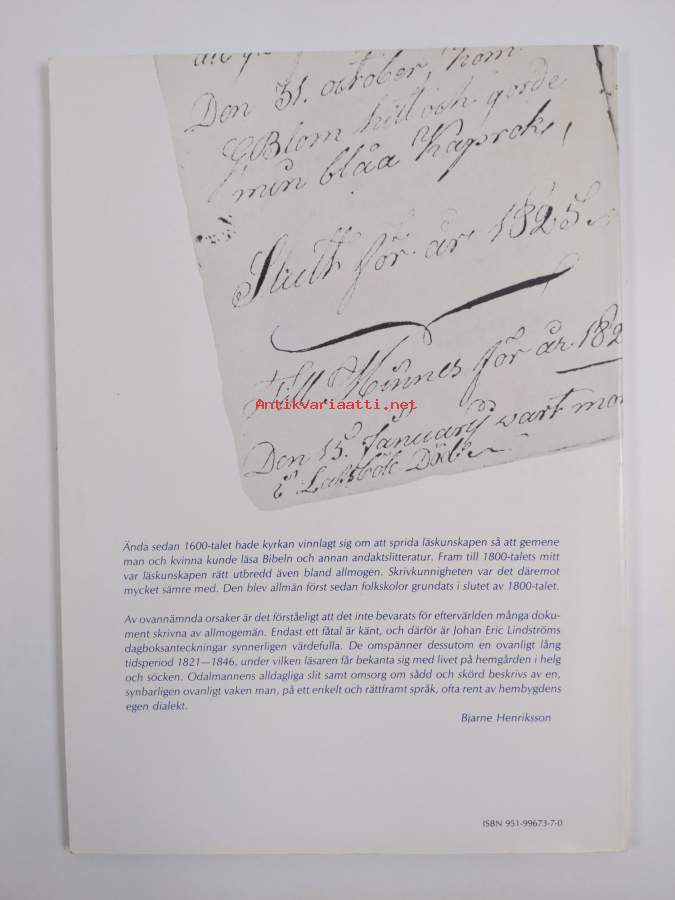 Den 31. october, kom
G Blom hit och gorde
min blåa Kaprok,
Slutt för år 1825.
Till Minnes för år 182
Antikvariaatti.net
Den 15. January wart mor
i Död
Ända sedan 1600-talet hade kyrkan vinnlagt sig om att sprida läskunskapen så att gemene
man och kvinna kunde läsa Bibeln och annan andaktslitteratur. Fram till 1800-talets mitt
var läskunskapen rätt utbredd även bland allmogen. Skrivkunnigheten var det däremot
mycket sämre med. Den blev allmän först sedan folkskolor grundats i slutet av 1800-talet.
Av ovannämnda orsaker är det förståeligt att det inte bevarats för eftervärlden många doku-
ment skrivna av allmogemän. Endast ett fåtal är känt, och därför är Johan Eric Lindströms
dagboksanteckningar synnerligen värdefulla. De omspänner dessutom en ovanligt lång
tidsperiod 1821—1846, under vilken läsaren får bekanta sig med livet på hemgården i helg
och söcken. Odalmannens alldagliga slit samt omsorg om sådd och skörd beskrivs av en,
synbarligen ovanligt vaken man, på ett enkelt och rättframt språk, ofta rent av hembygdens
egen dialekt.
Bjarne Henriksson
ISBN 951-99673-7-0